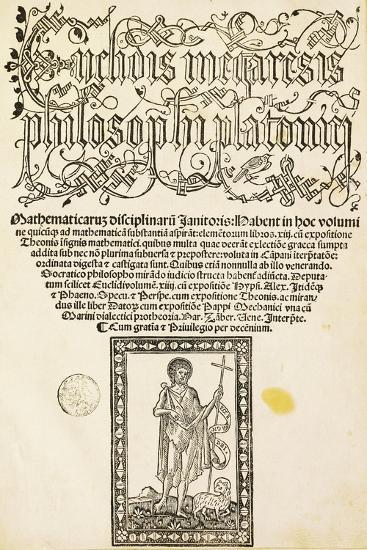 Euclidis megaresis
philosophi platonici
Mathematicaruʒ disciplinarū Janitoris: Habent in hoc volumi
ne quicūqʒ ad mathematicā substantiā aspirāt: elemētorum libros. xiij. cū expositione
Theonis insignis mathematici. quibus multa quae deerāt ex lectiōe graeca sumpta
addita sub nec nō plurima subuersa ⁊ prepostere: voluta in Cāpani iterptatōe:
ordinata digesta ⁊ castigata sunt. Quibus etiā nonnulla ab illo venerando.
Socratico philosopho mirādo iudicio structa habent̄ adiūcta. Deputa-
tum scilicet Euclidi volumē. xiiij. cū expositiōe Hypsi. Alex. Itideqʒ
⁊ Phaeno. Specu. ⁊ Perspe. cum expositione Theonis. ac miran/
dus ille liber Datoʀ cum expositiōe Pappi Mechanici vna cū
Marini dialectici protheoria. Bar. Zāber. Vene. Interpʒte.
¶ Cum gratia ⁊ Priuilegio per decenium.